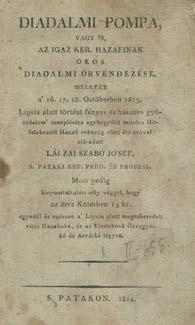 DIADALMI POMPA,
VAGY 'S,
AZ IGAZ KER. HAZAFINAK
OKOS
DIADALMI ÖRVENDEZÉSE,
MELLYET
a' 16. 17. 18. Octóberben 1813.
Lipsia alatt történt fényes és hasznos győ-
zedelem' ünneplésére egybegyűlt minden Hit-
felekezetű Hazafi sokaság előtt élő szóval
elő-adott
LÁCZAI SZABÓ JÓSEF,
S. PATAKI REF. PRÉD. ÉS PROFESS.
Most pedig
kinyomtattatott olly véggel, hogy
az árva Kötésben 15 kr.
egyedűl és egészen a' Lipsia alatt megsebesedett
vitéz Hazafiaké, és az Elesteknek Özvegyei-
ké és Árváiké légyen.
S. PATAKON. 1814.